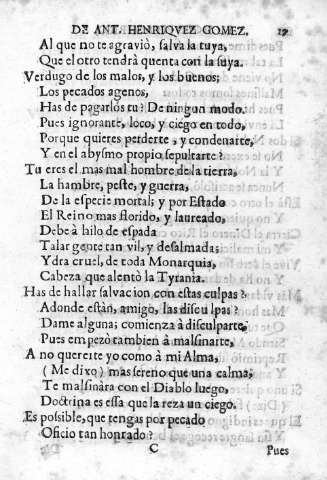 DE ANT. HENRIQVEZ GOMEZ. 17
Al que no te agraviò, salva la tuya,
Que el otro tendrà quenta con la suya.
Verdugo de los malos, y los buenos;
Los pecados agenos,
Has de pagarlos tu? De ningun modo.
Pues ignorante, loco, y ciego en todo,
Porque quieres perderte, y condenarte,
Y en el abysmo propio sepultarte?
Tu eres el mas mal hombre de la tierra,
La hambre, peste, y guerra,
De la especie mortal; y por Estado
El Reino mas florido, y laureado,
Debe à hilo de espada
Talar gente tan vil, y desalmada;
Ydra cruel, de toda Monarquia,
Cabeza que alentò la Tyrania.
Has de hallar salvacion con estas culpas?
Adonde estàn, amigo, las disculpas?
Dame alguna; comienza à disculparte,
Pues empezò tambien à malsinarte,
A no quererte yo como à mi Alma,
(Me dixo) mas sereno que una calma;
Te malsinàra con el Diablo luego,
Doctrina es essa que la reza un ciego.
Es possible, que tengas por pecado
Oficio tan honrado?
C Pues